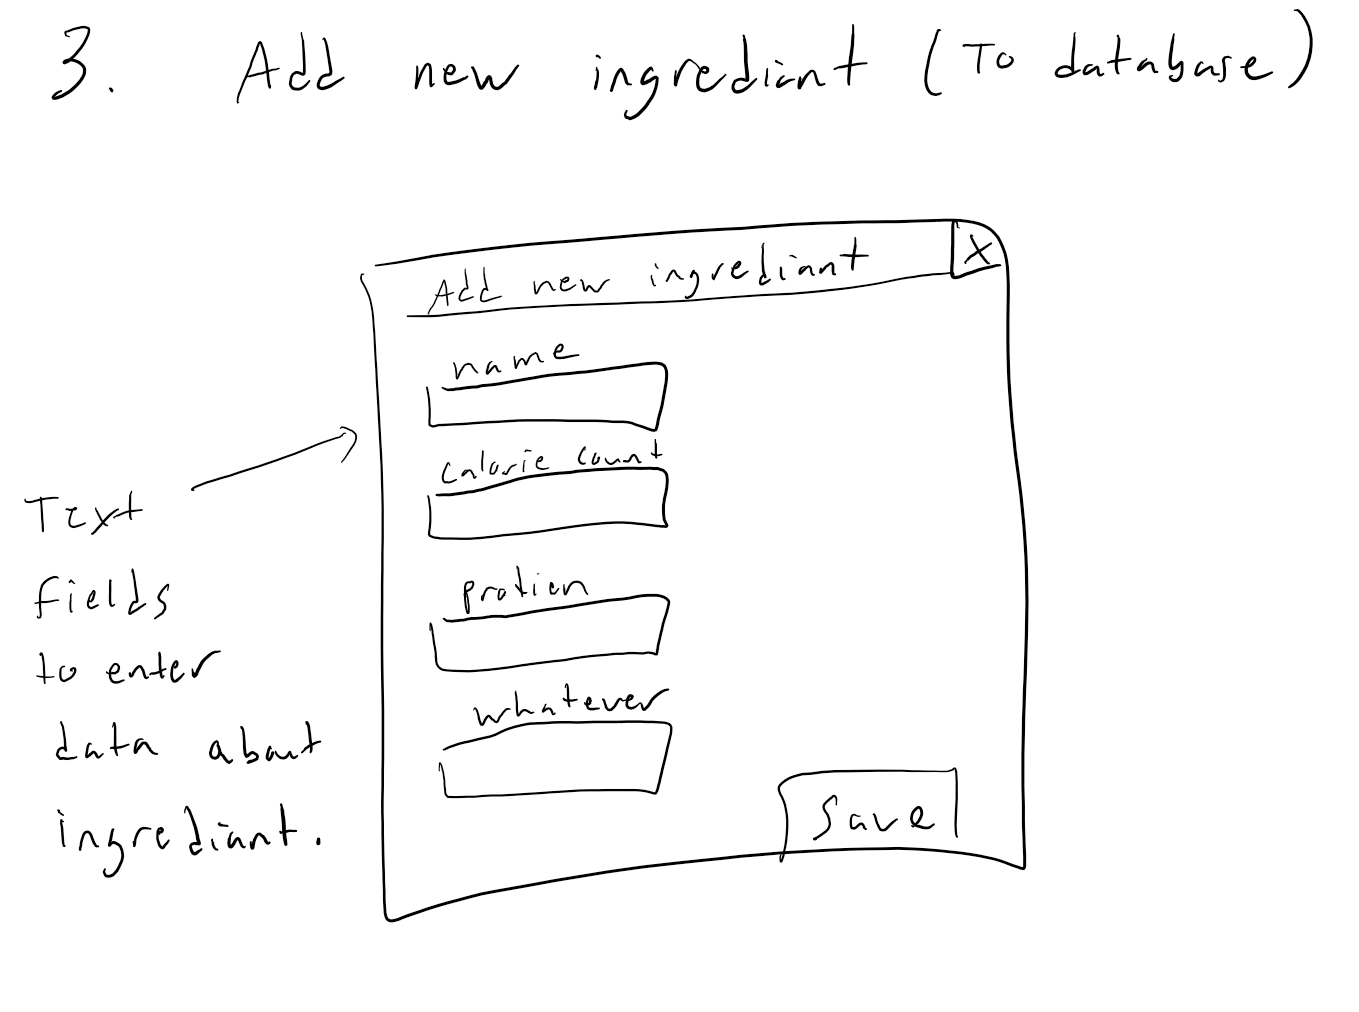 3. Add new ingrediant (To database)
Add new ingrediant X
name
calorie count
protien
whatever
Save
Text
fields
to enter
data about
ingrediant.